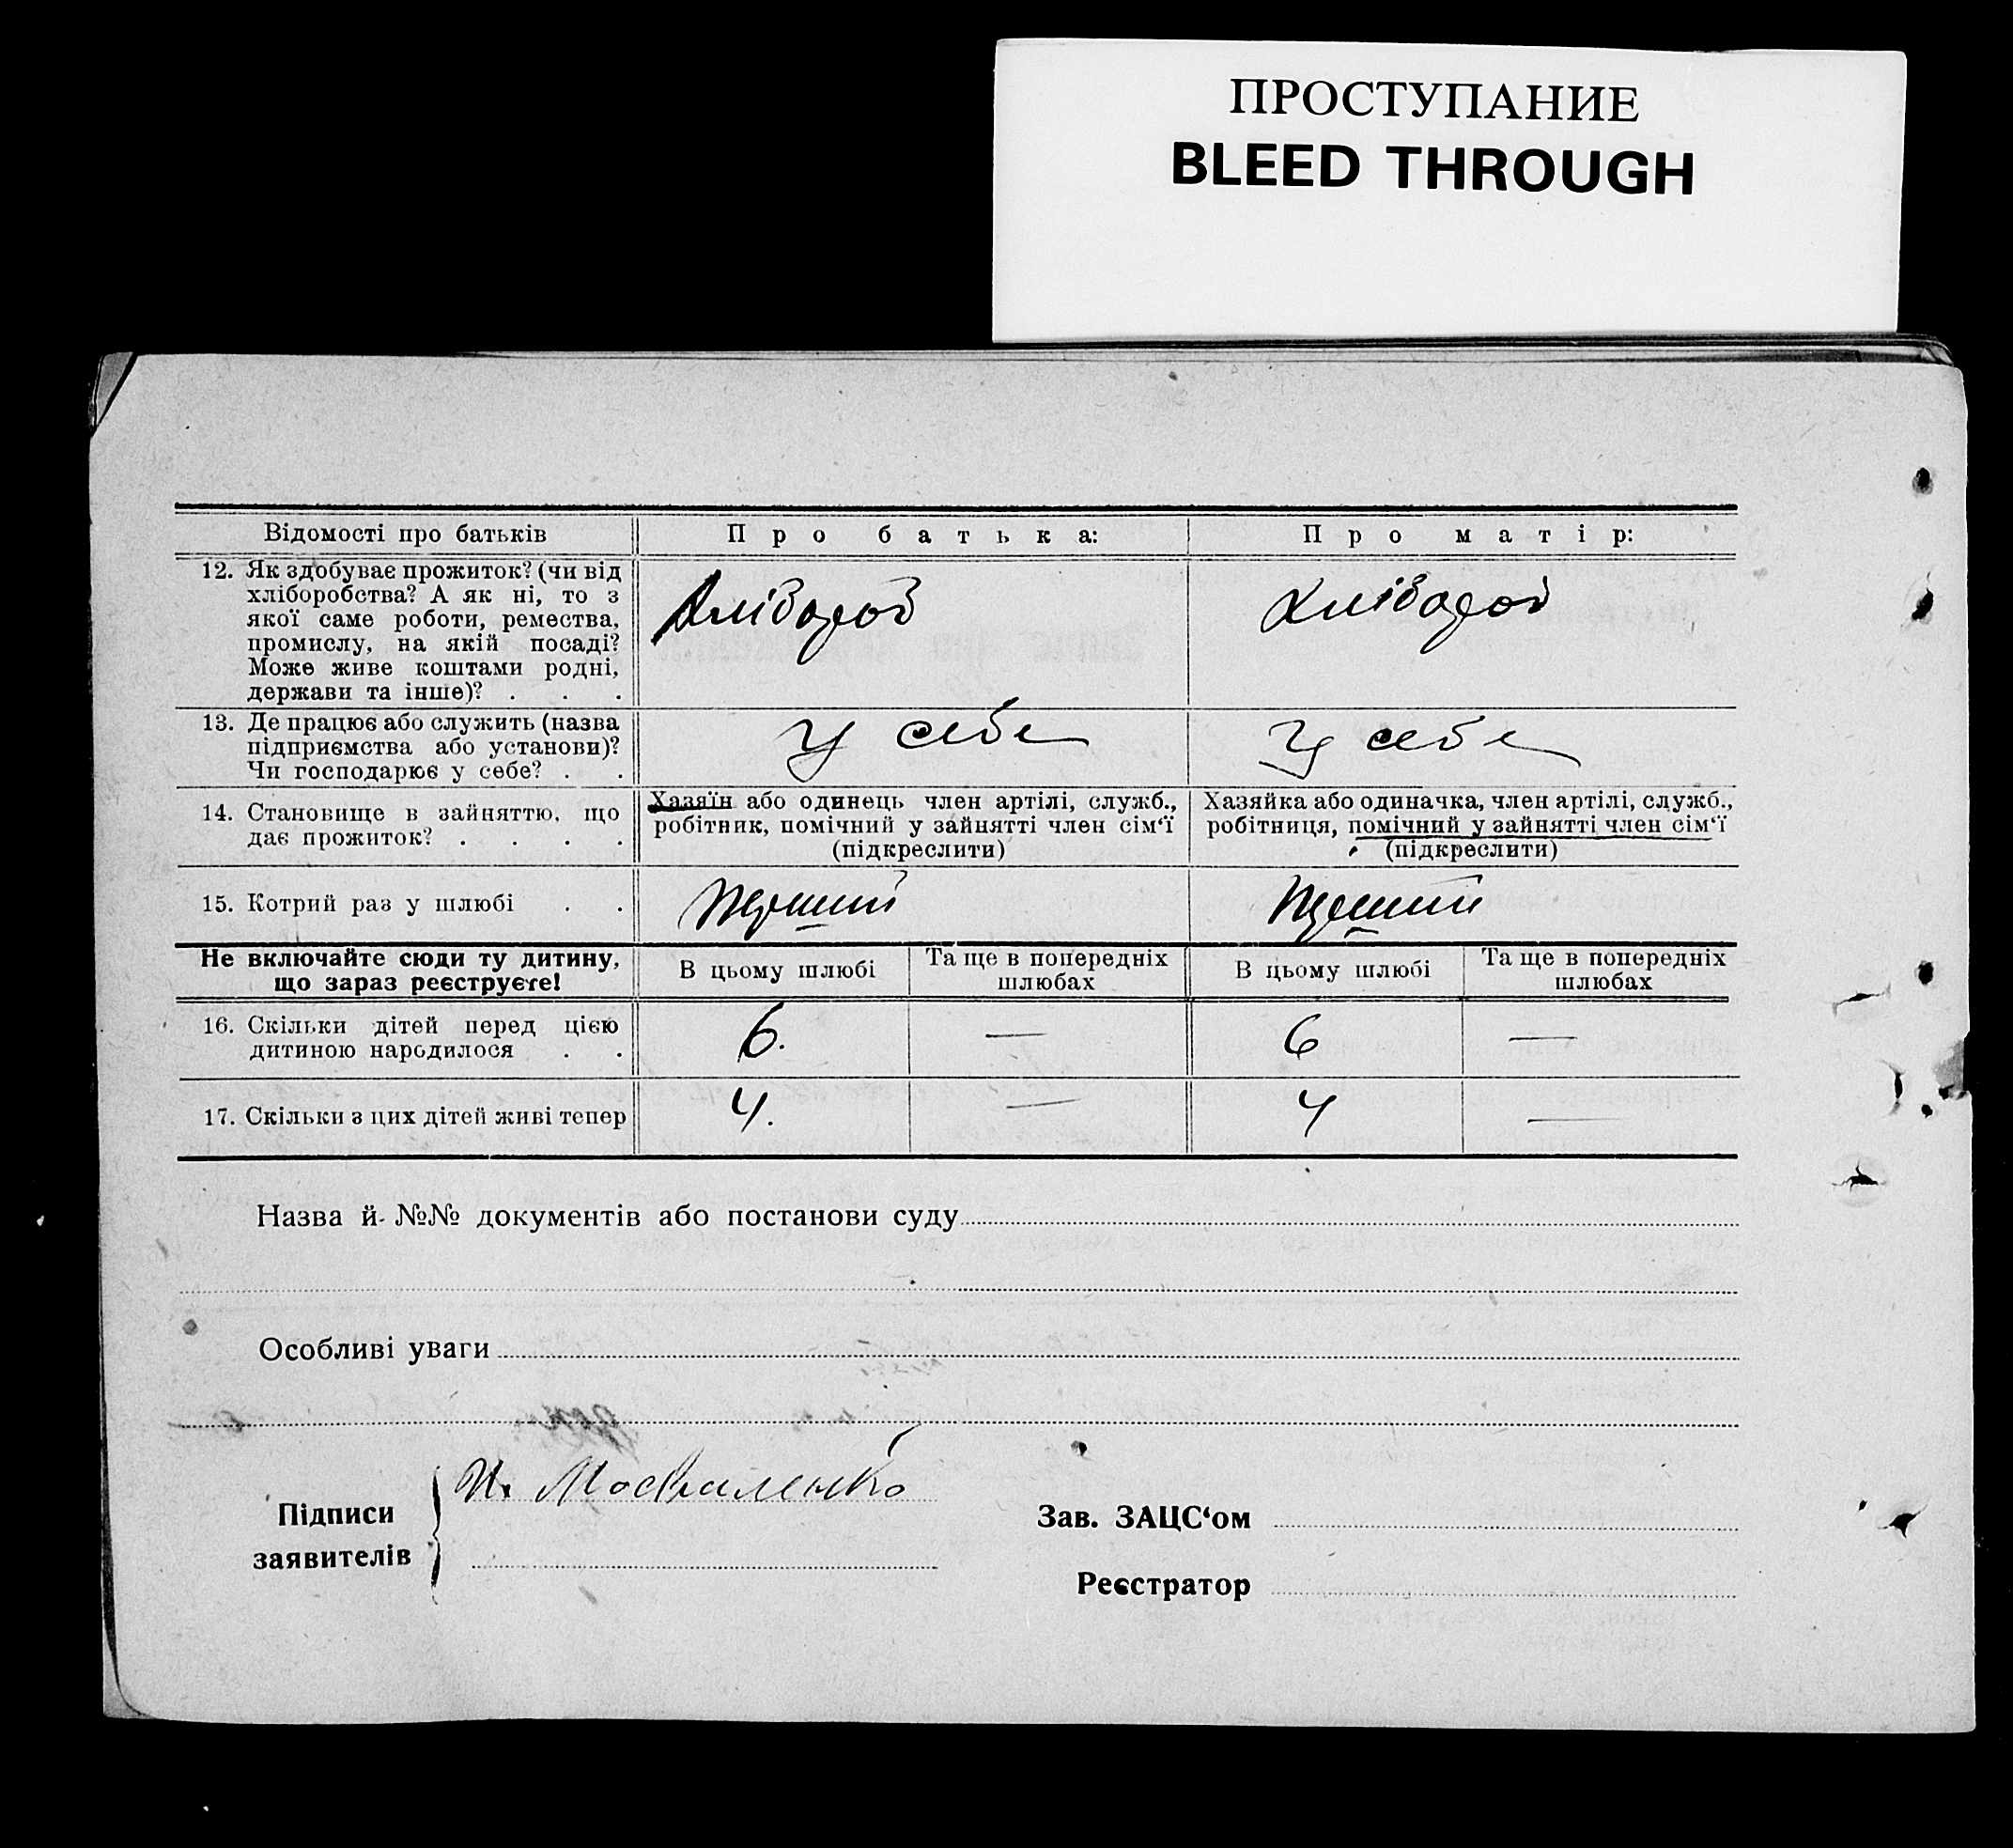 ПРОСТУПАНИЕ
BLEED THROUGH
Відомості про батьків
Про батька:
Про матір:
12. Як здобуває прожиток? (чи від
хліборобства? А як ні, то з
якої саме роботи, ремества,
промислу, на якій посаді?
Може живе коштами родні,
держави та інше)? . . .
Хлібороб
Хлібороб
13. Де працює або служить (назва
підприємства або установи)?
Чи господарює у себе? . .
У себе
У себе
14. Становище в зайняттю, що
дає прожиток? . . . .
Хазяїн або одинець член артілі, служб.,
робітник, помічний у зайнятті член сім‘ї
(підкреслити)
Хазяйка або одиначка, член артілі, служб.,
робітниця, помічний у зайнятті член сім‘ї
(підкреслити)
15. Котрий раз у шлюбі . .
Перший
Перший
Не включайте сюди ту дитину,
що зараз реєструєте!
В цьому шлюбі
Та ще в попередніх
шлюбах
В цьому шлюбі
Та ще в попередніх
шлюбах
16. Скільки дітей перед цією
дитиною народилося . .
6. — 6 —
17. Скільки з цих дітей живі тепер
4. — 4 —
Назва й №№ документів або постанови суду
Особливі уваги
Підписи
заявителів
И. Москаленко
Зав. ЗАЦС‘ом
Реєстратор